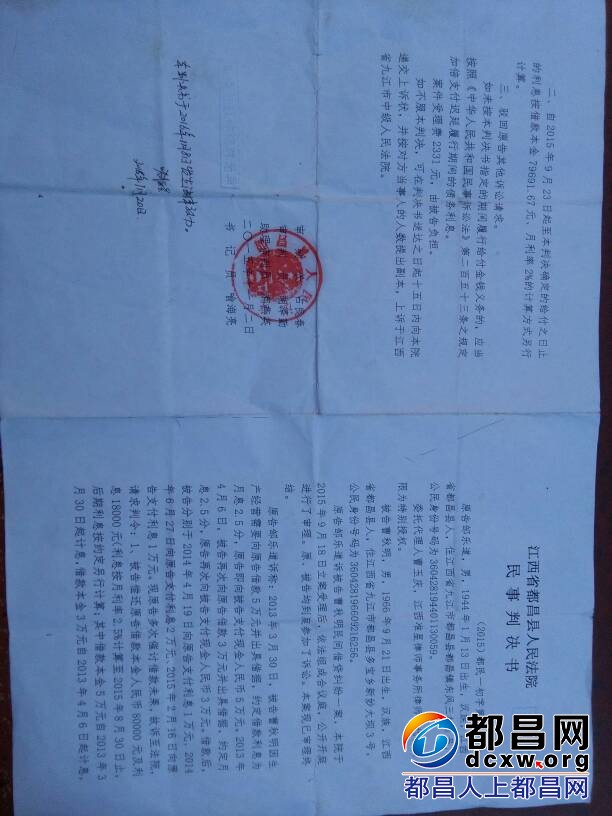 江西省都昌县人民法院
民事判决书
(2015)都民一初字第
原告邹乐道,男,1944年1月13日出生,汉族
省都昌县人,住江西省九江市都昌县都昌镇东风
公民身份号码为360428194401130059。
委托代理人曹玉庆,江西准星律师事务所律师
限为特别授权。
被告曹秋明,男,1966年9月21日出生,汉族,江西
省都昌县人,住江西省九江市都昌县多宝乡新妙大垅3号。
公民身份号码为360428196609216256。
原告邹乐道诉被告曹秋明民间借贷纠纷一案,本院于
2015年9月18日立案受理后,依法组成合议庭,公开开庭
进行了审理。原、被告均到庭参加了诉讼。本案现已审理终
结。
原告邹乐道诉称:2013年3月30日,被告曹秋明因生
产经营需要向原告借款5万元并出具借据,约定借款利息为
月息2.5分,原告即向被告支付现金人民币5万元。2013年
4月6日,被告再次向原告借款3万元并出具借据。约定月
息2.5分,原告再次向被告支付现金人民币3万元。借款后,
被告分别于2014年4月19日向原告支付利息1万元、2014
年6月27日向原告支付利息2万元、2015年2月16日向原
告支付利息1万元。现原告多次催讨借款未果,故诉至法院,
请求判令:1、被告偿还原告借款本金人民币80000元及利
息18000元(利息按月利率2.5%计算至2015年8月30日止,
后期利息按约定另行计算,其中借款本金5万元自2013年3
月30日起计息,借款本金3万元自2013年4月6日起计息,
二、自2015年9月23日起至本判决确定的给付之日止
的利息按借款本金79691.67元、月利率2%的计算方式另行
计算。
三、驳回原告其他诉讼请求。
如未按本判决书指定的期间履行给付金钱义务的,应当
按照《中华人民共和国民事诉讼法》第二百五十三条之规定
加倍支付迟延履行期间的债务利息。
案件受理费2331元,由被告负担。
如不服本判决,可在判决书送达之日起十五日内向本院
递交上诉状,并按对方当事人的人数提出副本,上诉于江西
省九江市中级人民法院。
审
助理审判员
二〇一五年 月二日
书记员 曾海亮
本判决书于2016年1月8日发生法律效力。
2016年1月20日
都昌网
dcxw.org
都昌人上都昌网